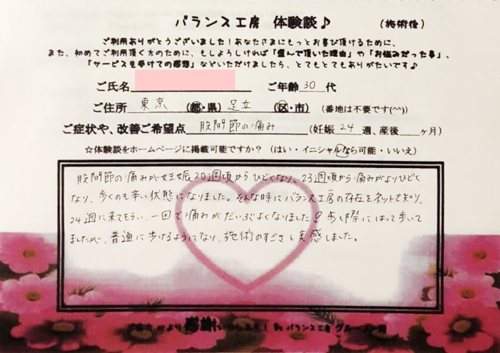 バランス工房 体験談♪ (施術後)
ご利用ありがとうございました！あなたさまにもっとお喜び頂けるために、
また、初めてご利用頂く方のために、もしよろしければ「選んで頂いた理由」や「お悩みだった事」、
「サービスを受けての感想」などいただけましたら、とてもとてもありがたいです♪
ご氏名 ご年齢 30 代
ご住所 東京 (都・県) 足立 (区・市) (番地は不要です(^^))
ご症状や、改善ご希望点 股関節の痛み (妊娠 24 週、産後 ヶ月)
☆体験談をホームページに掲載可能ですか？ (はい・イニシャルなら可能・いいえ)
股関節の痛みが妊娠20週頃からひどくなり、23週頃から痛みがよりひどく
なり、歩くのも辛い状態になりました。そんな時にバランス工房の存在をネットで知り、
24週に来てもらい、一回で痛みがだいぶよくなりました！
ましたが、普通に歩けるようになり、施術のすごさを実感しました。
感謝 バランス工房